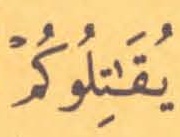 يُقَـٰتِلُوكُمْ